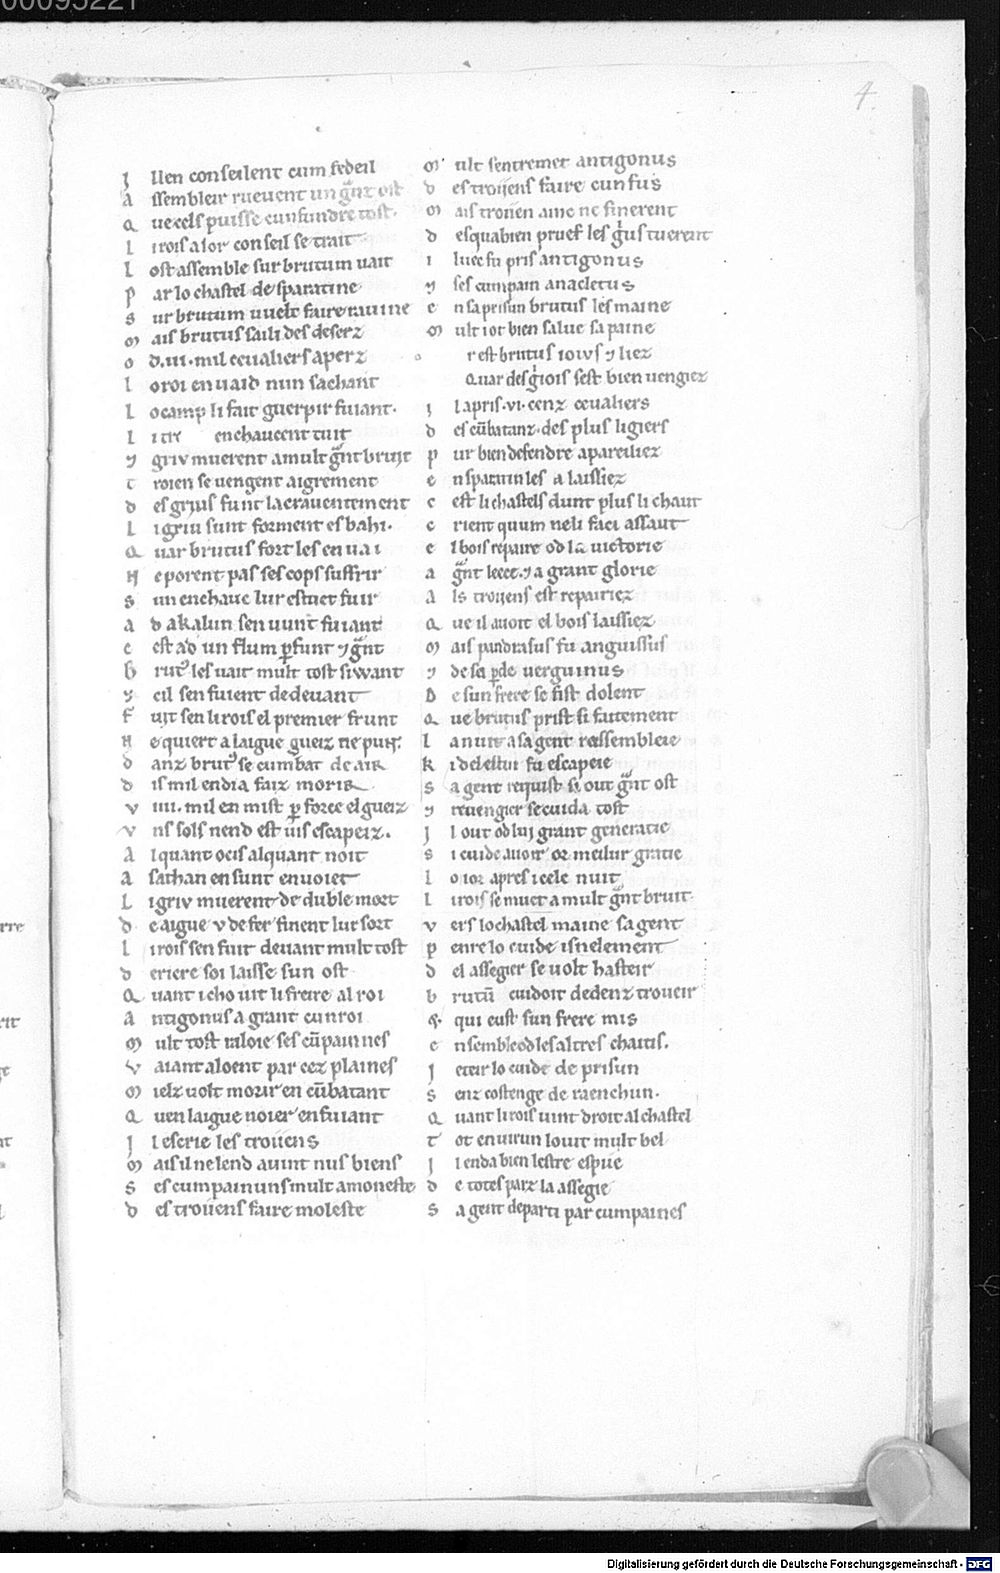 00095221
4
I llen conseilent cum fedeil
A ssembleir rueuent un gn̄t ost
Q ue cels puisse cunfundre tost.
L irois a lor conseil se trait
L ost assemble sur brutum uait
P ar lo chastel de sparatine
S ur brutum uuelt faire rauine
M ais brutus saili des deserz
O d .iii. mil ceualiers aperz
L o roi enuaid nun sachant
L o camp li fait guerpir fuiant.
L i enchaucent tuit
⁊ griu muerent a mult gn̄t bruit
T roien se uengent aigrement
D es grius funt lacrauentement
L i griu sunt forment esbahi.
Q uar brutus fort les enuai
N e porent pas ses cops suffrir
S un enchauc lur estuet fuir
A d akalun sen uunt fuiant
C est ad un flum ꝑfunt ⁊ gn̄t
B rut⁹ les uait mult tost siwant
⁊ cil sen fuient dedeuant
F uit sen li rois el premier frunt
N e quiert a laigue gueiz ne punt.
D anz brut⁹ se cumbat de air
D is mil en dia faiz morir
V iiii. mil en mist ꝑ force el gueiz
V ns sols nend est uis escapeiz.
A lquant ocis alquant noit
A sathan en sunt enuoiet
L i griu muerent de duble mort
D e aigue v de fer finent lur sort
L i rois sen fuit deuant mult tost
D eriere soi laisse sun ost
Q uant icho uit li freire al roi
A ntigonus a grant cunroi
M ult tost raloie ses cūpainnes
V aiant aloent par cez plaines
M ielz uolt morir en cūbatant
Q uen laigue noier en fuiant
I l escrie les troiiens
M ais il ne lend auint nus biens
S es cumpainuns mult amoneste
D es troiiens faire moleste
M ult sentremet antigonus
D es troiiens faire cunfus
M ais troiien ainc ne finerent
D esqua bien pruef les g̍us tuerent
I luec fu pris antigonus
⁊ ses cumpain anacletus
E n sa prisun brutus les maine
M ult iot bien salue sa paine
O r est brutus ioius ⁊ liez
Quar des g̍iois sest bien uengiez
I l a pris .vi. cenz ceualiers
D es cūbatanz. des plus ligiers
P ur bien defendre apareiliez
E n sparatin les a laissiez
C est li chastels dunt plus li chaut
C rient quum ne li faci assaut
E l bois repaire od la uictorie
A gn̄t leece. ⁊ a grant glorie
A ls troiiens est repairiez
Q ue il auoit el bois laissiez
M ais pandrasus fu anguissus
⁊ de sa ꝑde uerguinus
D e sun frere se fist dolent
Q ue brutus prist si faitement
L a nuit a sa gent rassembleie
K i del estur fu escapeie
S a gent requist si out gn̄t ost
⁊ reuengier se cuida tost
I l out od lui grant generatie
S i cuide auoir or meilur gratie
L o ior apres icele nuit
L i rois se muet a mult gn̄t bruit
V ers lo chastel maine sa gent
P enre lo cuide isnelement
D el assegier se uolt hasteir
B rutū cuidoit dedenz troueir
& qui eust sun frere mis
E nsemble od les altres chaitis.
I eteir lo cuide de prisun
S enz costenge de raenchun.
Q uant li rois uint droit al chastel
T ot enuirun louit mult bel
I l enda bien lestre espiie
D e totes parz la assegie
S a gent departi par cumpaines
Digitalisierung gefördert durch die Deutsche Forschungsgemeinschaft - DFG